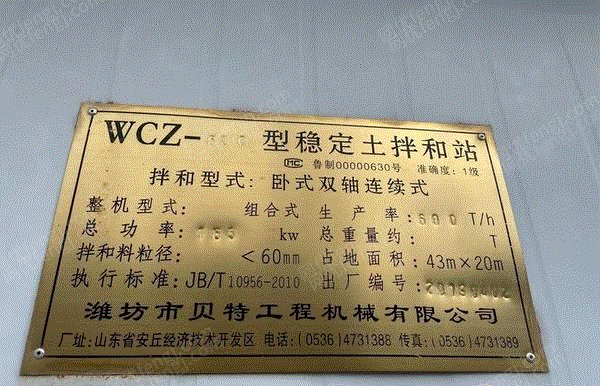 WCZ-600型稳定土拌和站
MC 鲁制00000630号 准确度：1级
拌和型式：卧式双轴连续式
整机型式： 组合式 生产率：600T/h
总功率： kw 总重量约： T
拌和料粒径： ＜60mm 占地面积：43m×20m
执行标准：JB/T10956-2010 出厂编号：
潍坊市贝特工程机械有限公司
厂址：山东省安丘经济技术开发区 电话：(0536)4731388 传真：(0536)4731389